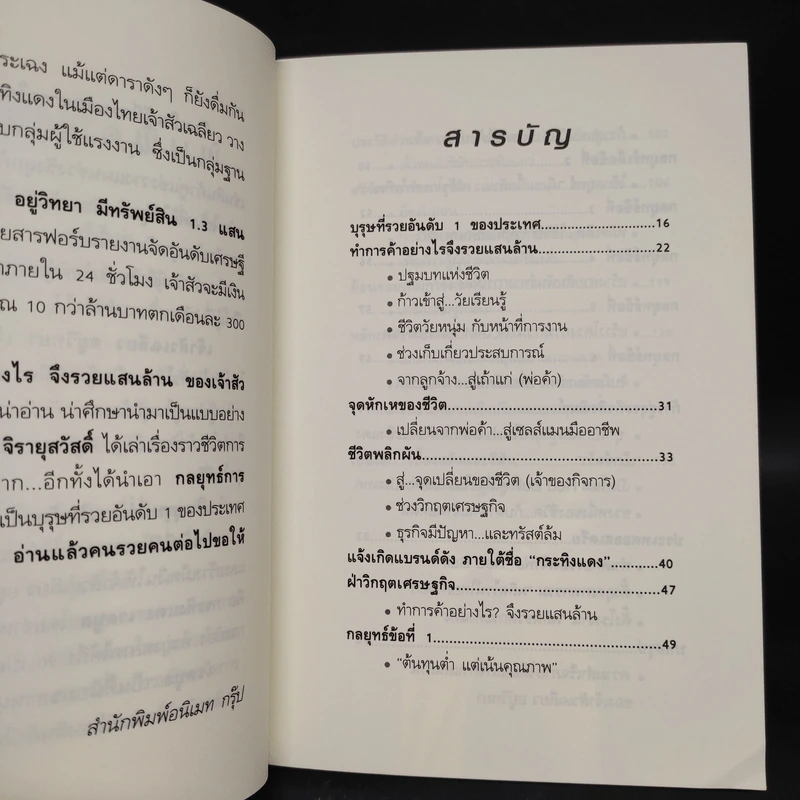 ระเฉง แม้แต่ดาราดังๆ ก็ยังดื่มกัน
ทิงแดงในเมืองไทยเจ้าสัวเฉลียว วาง
บกลุ่มผู้ใช้แรงงาน ซึ่งเป็นกลุ่มฐาน
อยู่วิทยา มีทรัพย์สิน 1.3 แสน
ยสารฟอร์บรายงานจัดอันดับเศรษฐี
าภายใน 24 ชั่วโมง เจ้าสัวจะมีเงิน
ณ 10 กว่าล้านบาทตกเดือนละ 300
งไร จึงรวยแสนล้าน ของเจ้าสัว
น่าอ่าน น่าศึกษานำมาเป็นแบบอย่าง
จิรายุสวัสดิ์ ได้เล่าเรื่องราวชีวิตการ
าก...อีกทั้งได้นำเอา กลยุทธ์การ
เป็นบุรุษที่รวยอันดับ 1 ของประเทศ
อ่านแล้วคนรวยคนต่อไปขอให้
สำนักพิมพ์อนิเมท กรุ๊ป
สารบัญ
บุรุษที่รวยอันดับ 1 ของประเทศ............................16
ทำการค้าอย่างไรจึงรวยแสนล้าน............................22
• ปฐมบทแห่งชีวิต
• ก้าวเข้าสู่...วัยเรียนรู้
• ชีวิตวัยหนุ่ม กับหน้าที่การงาน
• ช่วงเก็บเกี่ยวประสบการณ์
• จากลูกจ้าง...สู่เถ้าแก่ (พ่อค้า)
จุดหักเหของชีวิต............................31
• เปลี่ยนจากพ่อค้า...สู่เซลส์แมนมืออาชีพ
ชีวิตพลิกผัน............................33
• สู่...จุดเปลี่ยนของชีวิต (เจ้าของกิจการ)
• ช่วงวิกฤตเศรษฐกิจ
• ธุรกิจมีปัญหา...และทรัสต์ล้ม
แจ้งเกิดแบรนด์ดัง ภายใต้ชื่อ “กระทิงแดง”............40
ฝ่าวิกฤตเศรษฐกิจ............................47
• ทำการค้าอย่างไร? จึงรวยแสนล้าน
กลยุทธ์ข้อที่ 1............................49
• “ต้นทุนต่ำ แต่เน้นคุณภาพ”